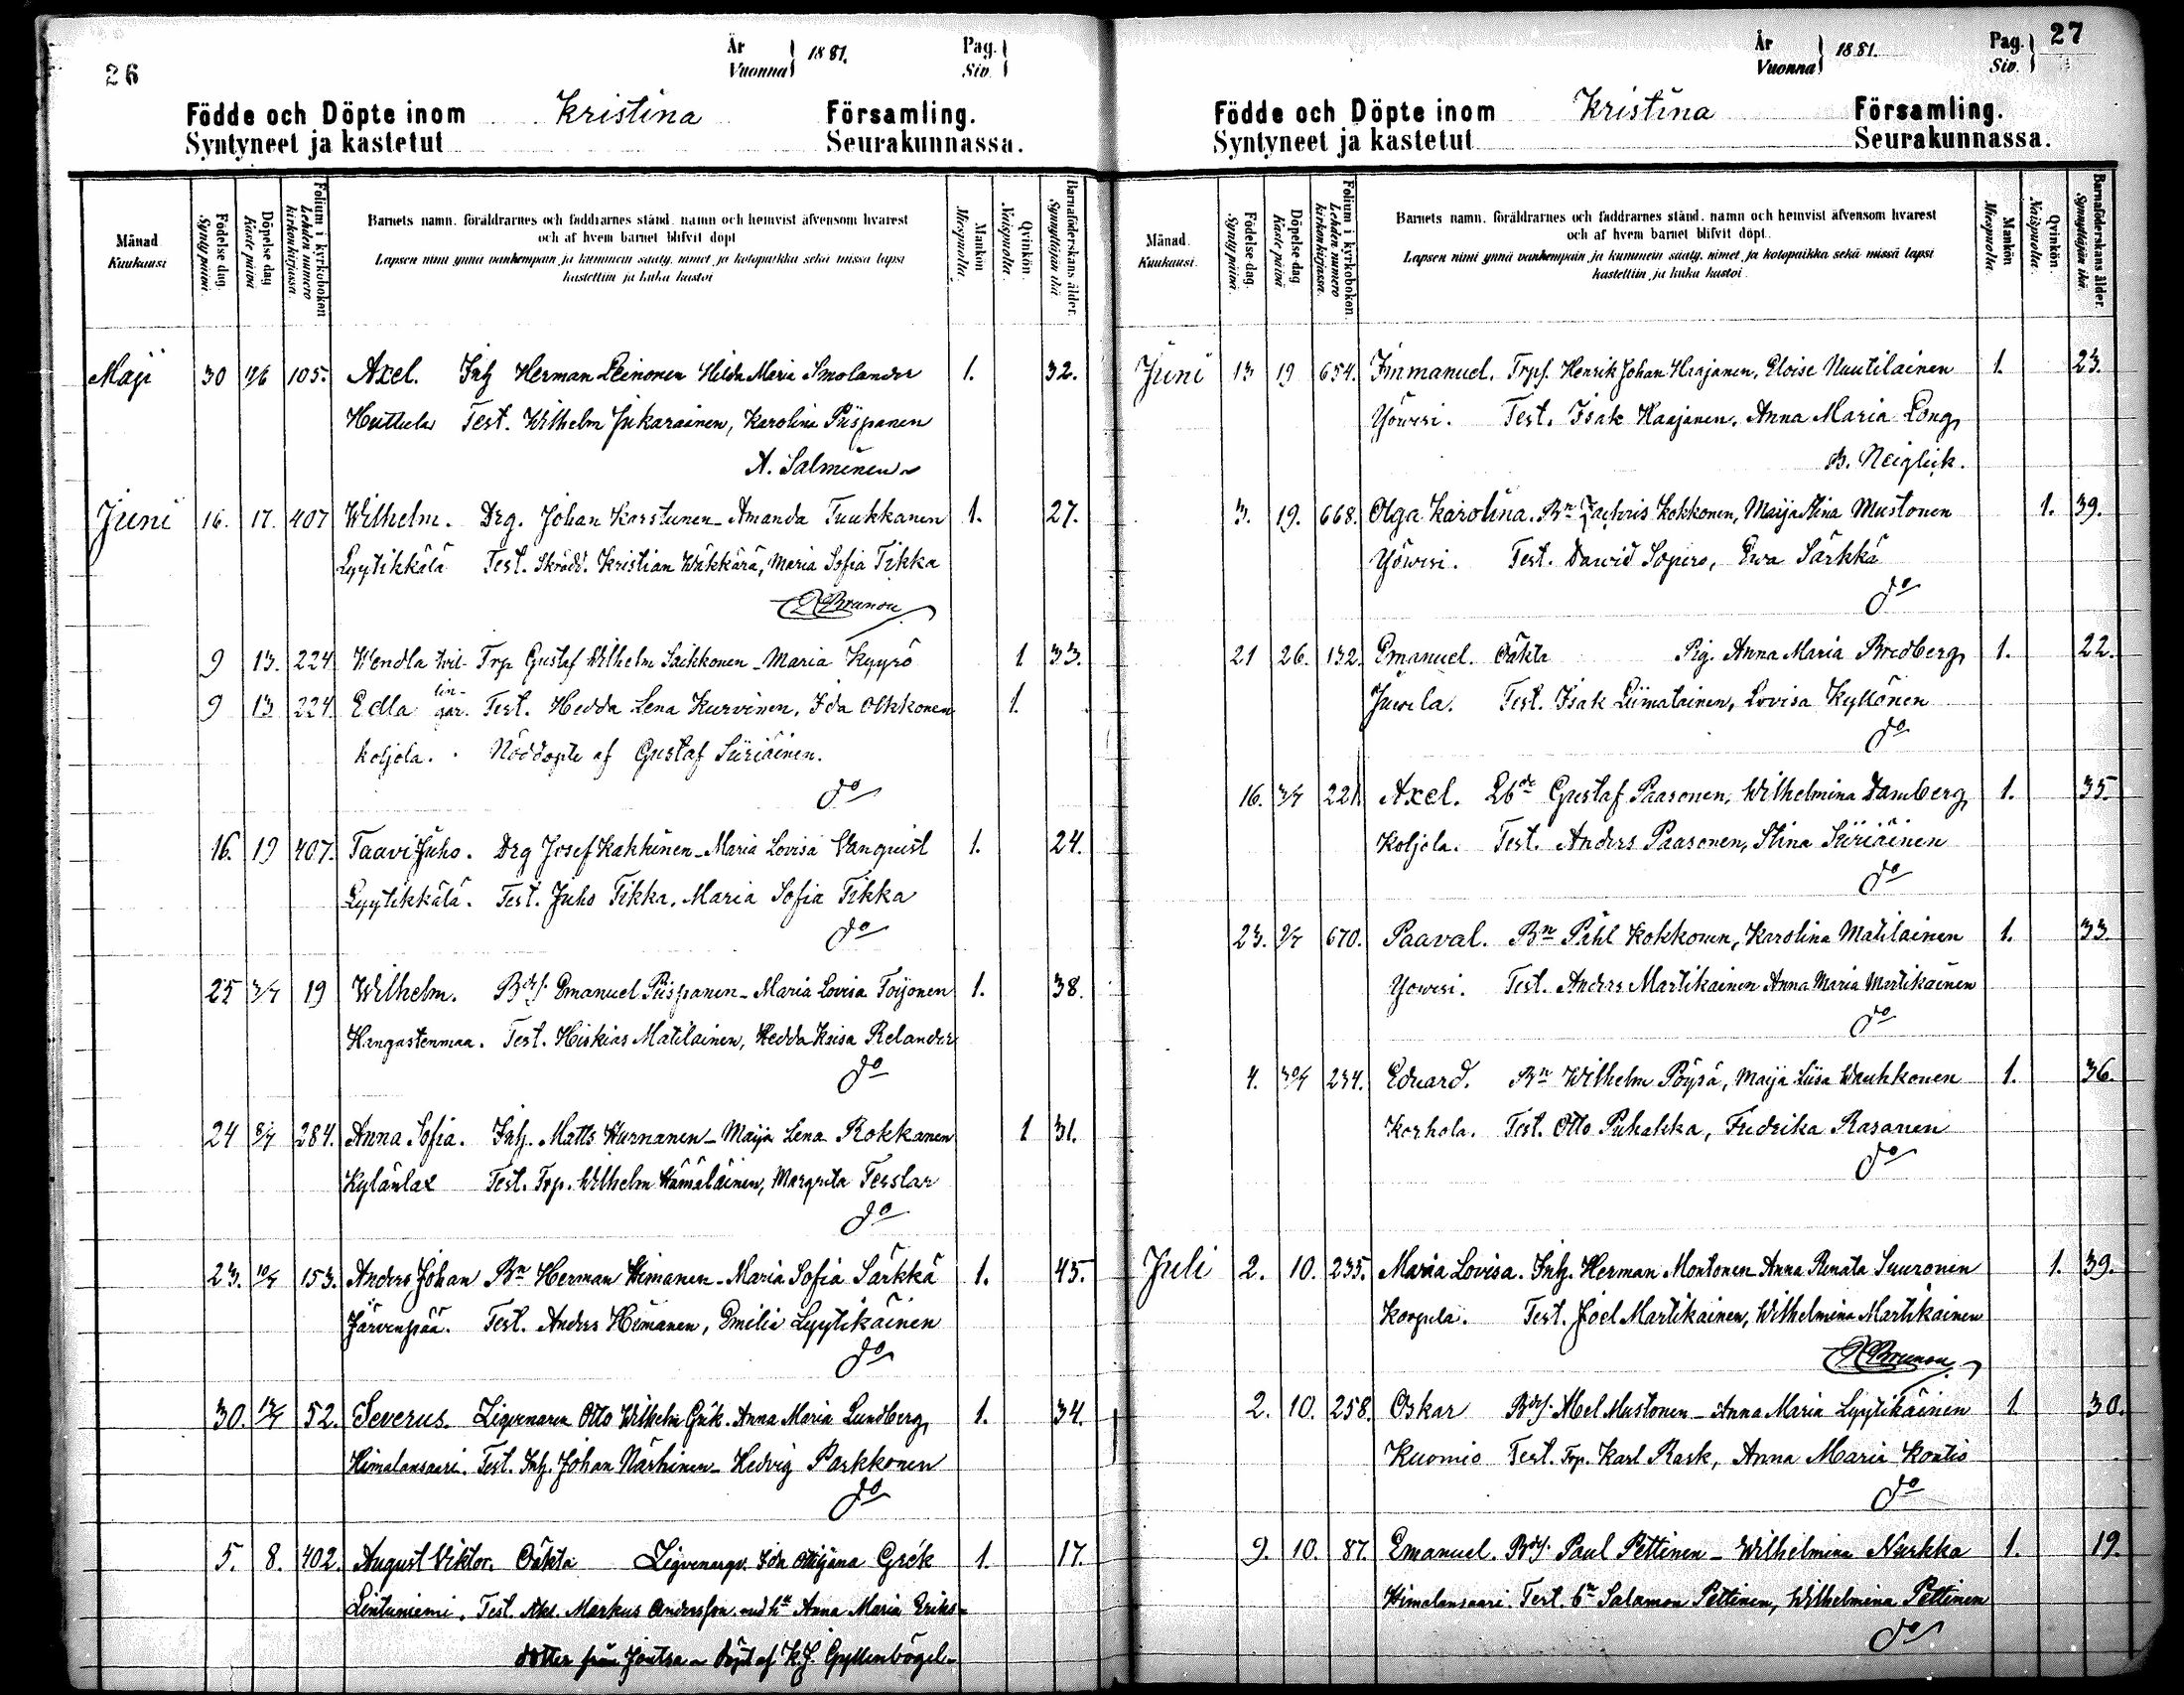 26
År Vuonna 1881.
Pag. Siv.
Födde och Döpte inom Kristina Församling.
Syntyneet ja kastetut Seurakunnassa.
Månad Kuukausi
Födelse dag. Synty päivä.
Döpelse dag Kaste päivä
Folium i kyrkobokon Lehden numero kirkonkirjassa.
Barnets namn, föräldrarnes och faddrarnes stånd, namn och hemvist äfvensom hvarest
och af hvem barnet blifvit döpt
Lapsen nimi ynnä vanhempain ja kummein sääty, nimet ja kotopaikka sekä missä lapsi
kastettiin ja kuka kastoi
Mankön Miespuolia.
Qvinkön Naispuolia.
Barnaföderskans ålder. Synnyttäjän ikä
Maji 30 12/6 105. Axel. Inh Herman Leinonen Hilda Maria Smolander 1. 32.
Huttula Test. Wilhelm Jukarainen, Karolina Piispanen
A. Salminen
Juni 16. 17. 407 Wilhelm. Drg. Johan Karstunen - Amanda Tuukkanen 1. 27.
Lyytikkälä Test. Skrädd. Kristian Wäkkärä, Maria Sofia Tikka
Brunou
9 13. 224 Wendla tvil- Trp Gustaf Wilhelm Saikkonen - Maria Kyyrö 1 33.
9 13 224 Edla lin-gar. Test. Hedda Lena Kurvinen, Ida Olkkonen 1.
Koljola. Nöddöpte af Gustaf Siiriäinen.
do
16. 19 407. Taavi Juho. Drg Josef Kakkinen - Maria Lovisa Vanquist 1. 24.
Lyytikkälä. Test. Juho Tikka, Maria Sofia Tikka
do
25 3/7 19 Wilhelm. Bds. Emanuel Piispanen - Maria Lovisa Toijonen 1. 38.
Hangastenmaa. Test. Hiskias Matilainen, Hedda Kaisa Relander
do
24 8/7 284. Anna Sofia. Inh. Matts Hurnanen - Maija Lena Rokkanen 1 31.
Kylänlax Test. Trp. Wilhelm Hämäläinen, Margreta Ferslar
do
23. 10/7 153. Anders Johan Bn Herman Himanen - Maria Sofia Särkkä 1. 45.
Järvenpää. Test. Anders Himanen, Emilia Lyytikäinen
do
30. 52. Severus. Zigenaren Otto Wilhelm Grék. Anna Maria Lundberg 1. 34.
Himalansaari. Test. Inh. Johan Närhinen - Hedvig Parkkonen
do
5. 8. 402. August Viktor. Oäkta Zigenarqv. Ida Grék 1. 17.
Lintuniemi. Test. Markus Andersson med hu Anna Maria Eriks-
dotter från Joutsa - Döpt af K.J. Gyllenbögel
27
År Vuonna 1881.
Pag. Siv.
Födde och Döpte inom Kristina Församling.
Syntyneet ja kastetut Seurakunnassa.
Månad. Kuukausi.
Födelse dag. Synty päivä.
Döpelse dag. Kaste päivä
Folium i kyrkobokon. Lehden numero kirkonkirjassa.
Barnets namn, föräldrarnes och faddrarnes stånd, namn och hemvist äfvensom hvarest
och af hvem barnet blifvit döpt.
Lapsen nimi ynnä vanhempain ja kummein sääty, nimet ja kotopaikka sekä missä lapsi
kastettiin ja kuka kastoi.
Mankön Miespuolia.
Qvinkön. Naispuolia.
Barnaföderskans ålder. Synnyttäjän ikä.
Juni 13 19 654. Immanuel. Trps. Henrik Johan Haajanen, Eloise Nuutilainen 1. 23.
Yöwesi. Test. Isak Haajanen. Anna Maria Long
B. Neiglick.
3. 19. 668. Olga Karolina. Bn Zachris Kokkonen, Maija Stina Mustonen 1. 39.
Yöwesi. Test. Dawid Sopero, Ewa Särkkä
do
21 26. 132. Emanuel. Oäkta Pig. Anna Maria Bredberg 1. 22.
Juwela. Test. Isak Liimatainen, Lovisa Kyllönen
do
16. 3/7 221. Axel. Gustaf Paasonen, Wilhelmina Damberg 1. 35.
Koljola. Test. Anders Paasonen, Stina Siiriäinen
do
23. 3/7 670. Paaval. Bn Påhl Kokkonen, Karolina Matilainen 1. 33.
Yöwesi. Test. Anders Martikainen Anna Maria Martikainen
do
4. 234. Eduard. Bn Wilhelm Pöysä, Maija Liisa Wauhkonen 1. 36.
Korhola. Test. Otto Puhakka, Fredrika Rasanen
do
Juli 2. 10. 235. Maria Lovisa. Inh. Herman Montonen Anna Renata Suuronen 1. 39.
Korpula. Test. Joel Martikainen, Wilhelmina Martikainen
Brunou
2. 10. 258. Oskar Bds. Abel Mustonen - Anna Maria Lyytikäinen 1 30.
Kuomio Test. Trp. Karl Rask, Anna Maria Kontio
do
9. 10. 87. Emanuel. Bds. Paul Pettinen - Wilhelmina Nurkka 1. 19.
Himalansaari. Test. Salamon Pettinen, Wilhelmina Pettinen
do